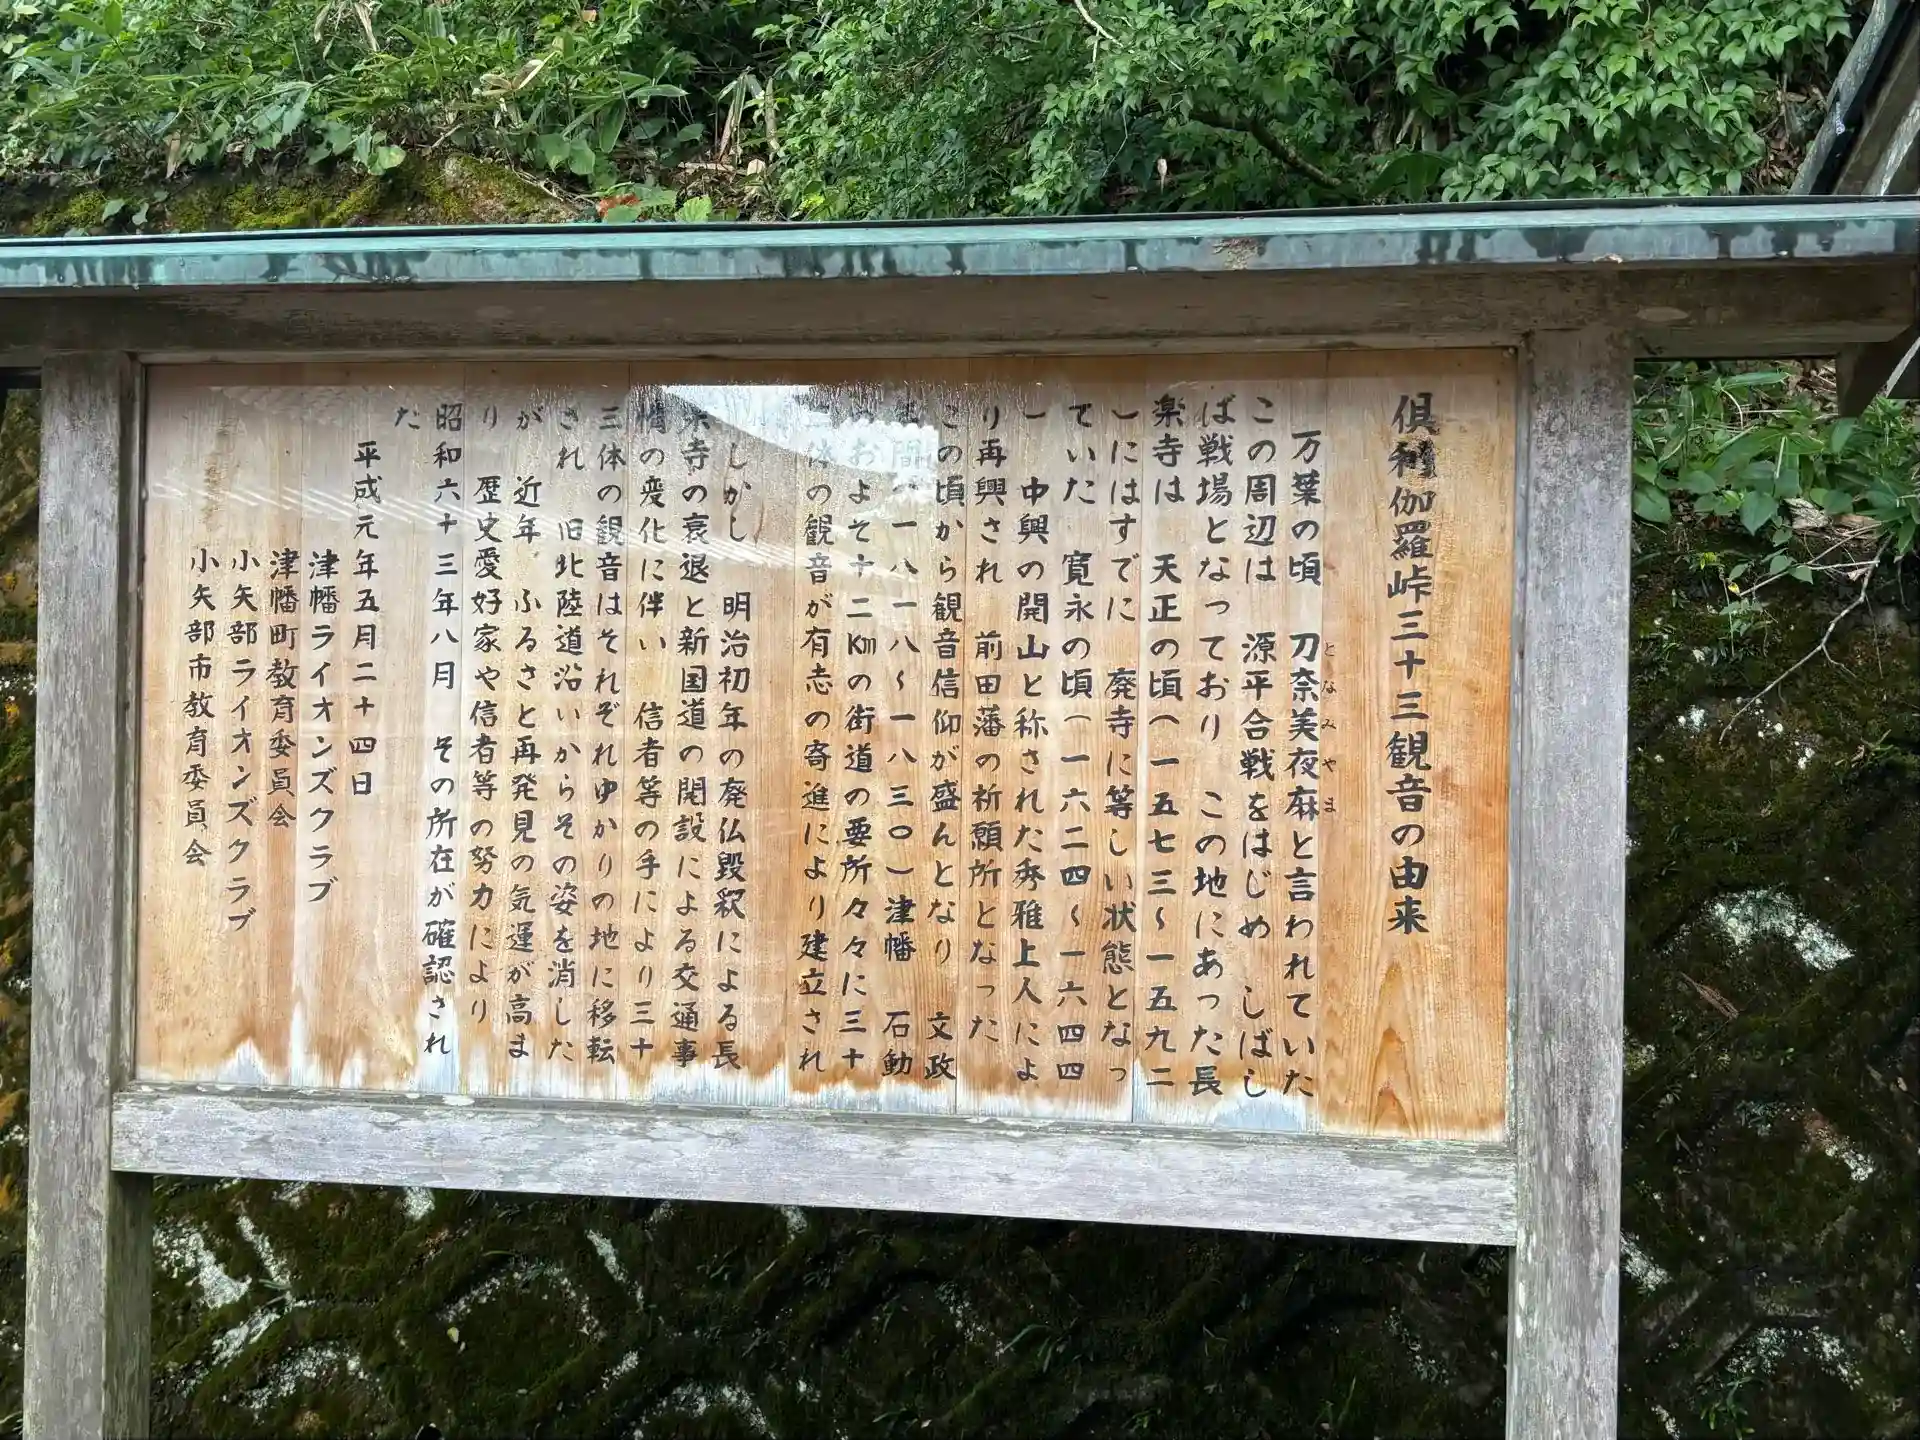 倶利伽羅峠三十三観音の由来
万葉の頃 刀奈美夜麻と言われていた
となみやま
この周辺は 源平合戦をはじめ しばし
ば戦場となっており この地にあった長
楽寺は 天正の頃(一五七三〜一五九二
)にはすでに 廃寺に等しい状態となっ
ていた 寛永の頃(一六二四〜一六四四
) 中興の開山と称された秀雅上人によ
り再興され 前田藩の祈願所となった
この頃から観音信仰が盛んとなり 文政
間(一八一八〜一八三〇)津幡 石動
およそ十二kmの街道の要所々々に三十
三体の観音が有志の寄進により建立され
しかし 明治初年の廃仏毀釈による長
楽寺の衰退と新国道の開設による交通事
情の変化に伴い 信者等の手により三十
三体の観音はそれぞれゆかりの地に移転
され 旧北陸道沿いからその姿を消した
が 近年 ふるさと再発見の気運が高ま
り 歴史愛好家や信者等の努力により
昭和六十三年八月 その所在が確認され
た
平成元年五月二十四日
津幡ライオンズクラブ
津幡町教育委員会
小矢部ライオンズクラブ
小矢部市教育委員会